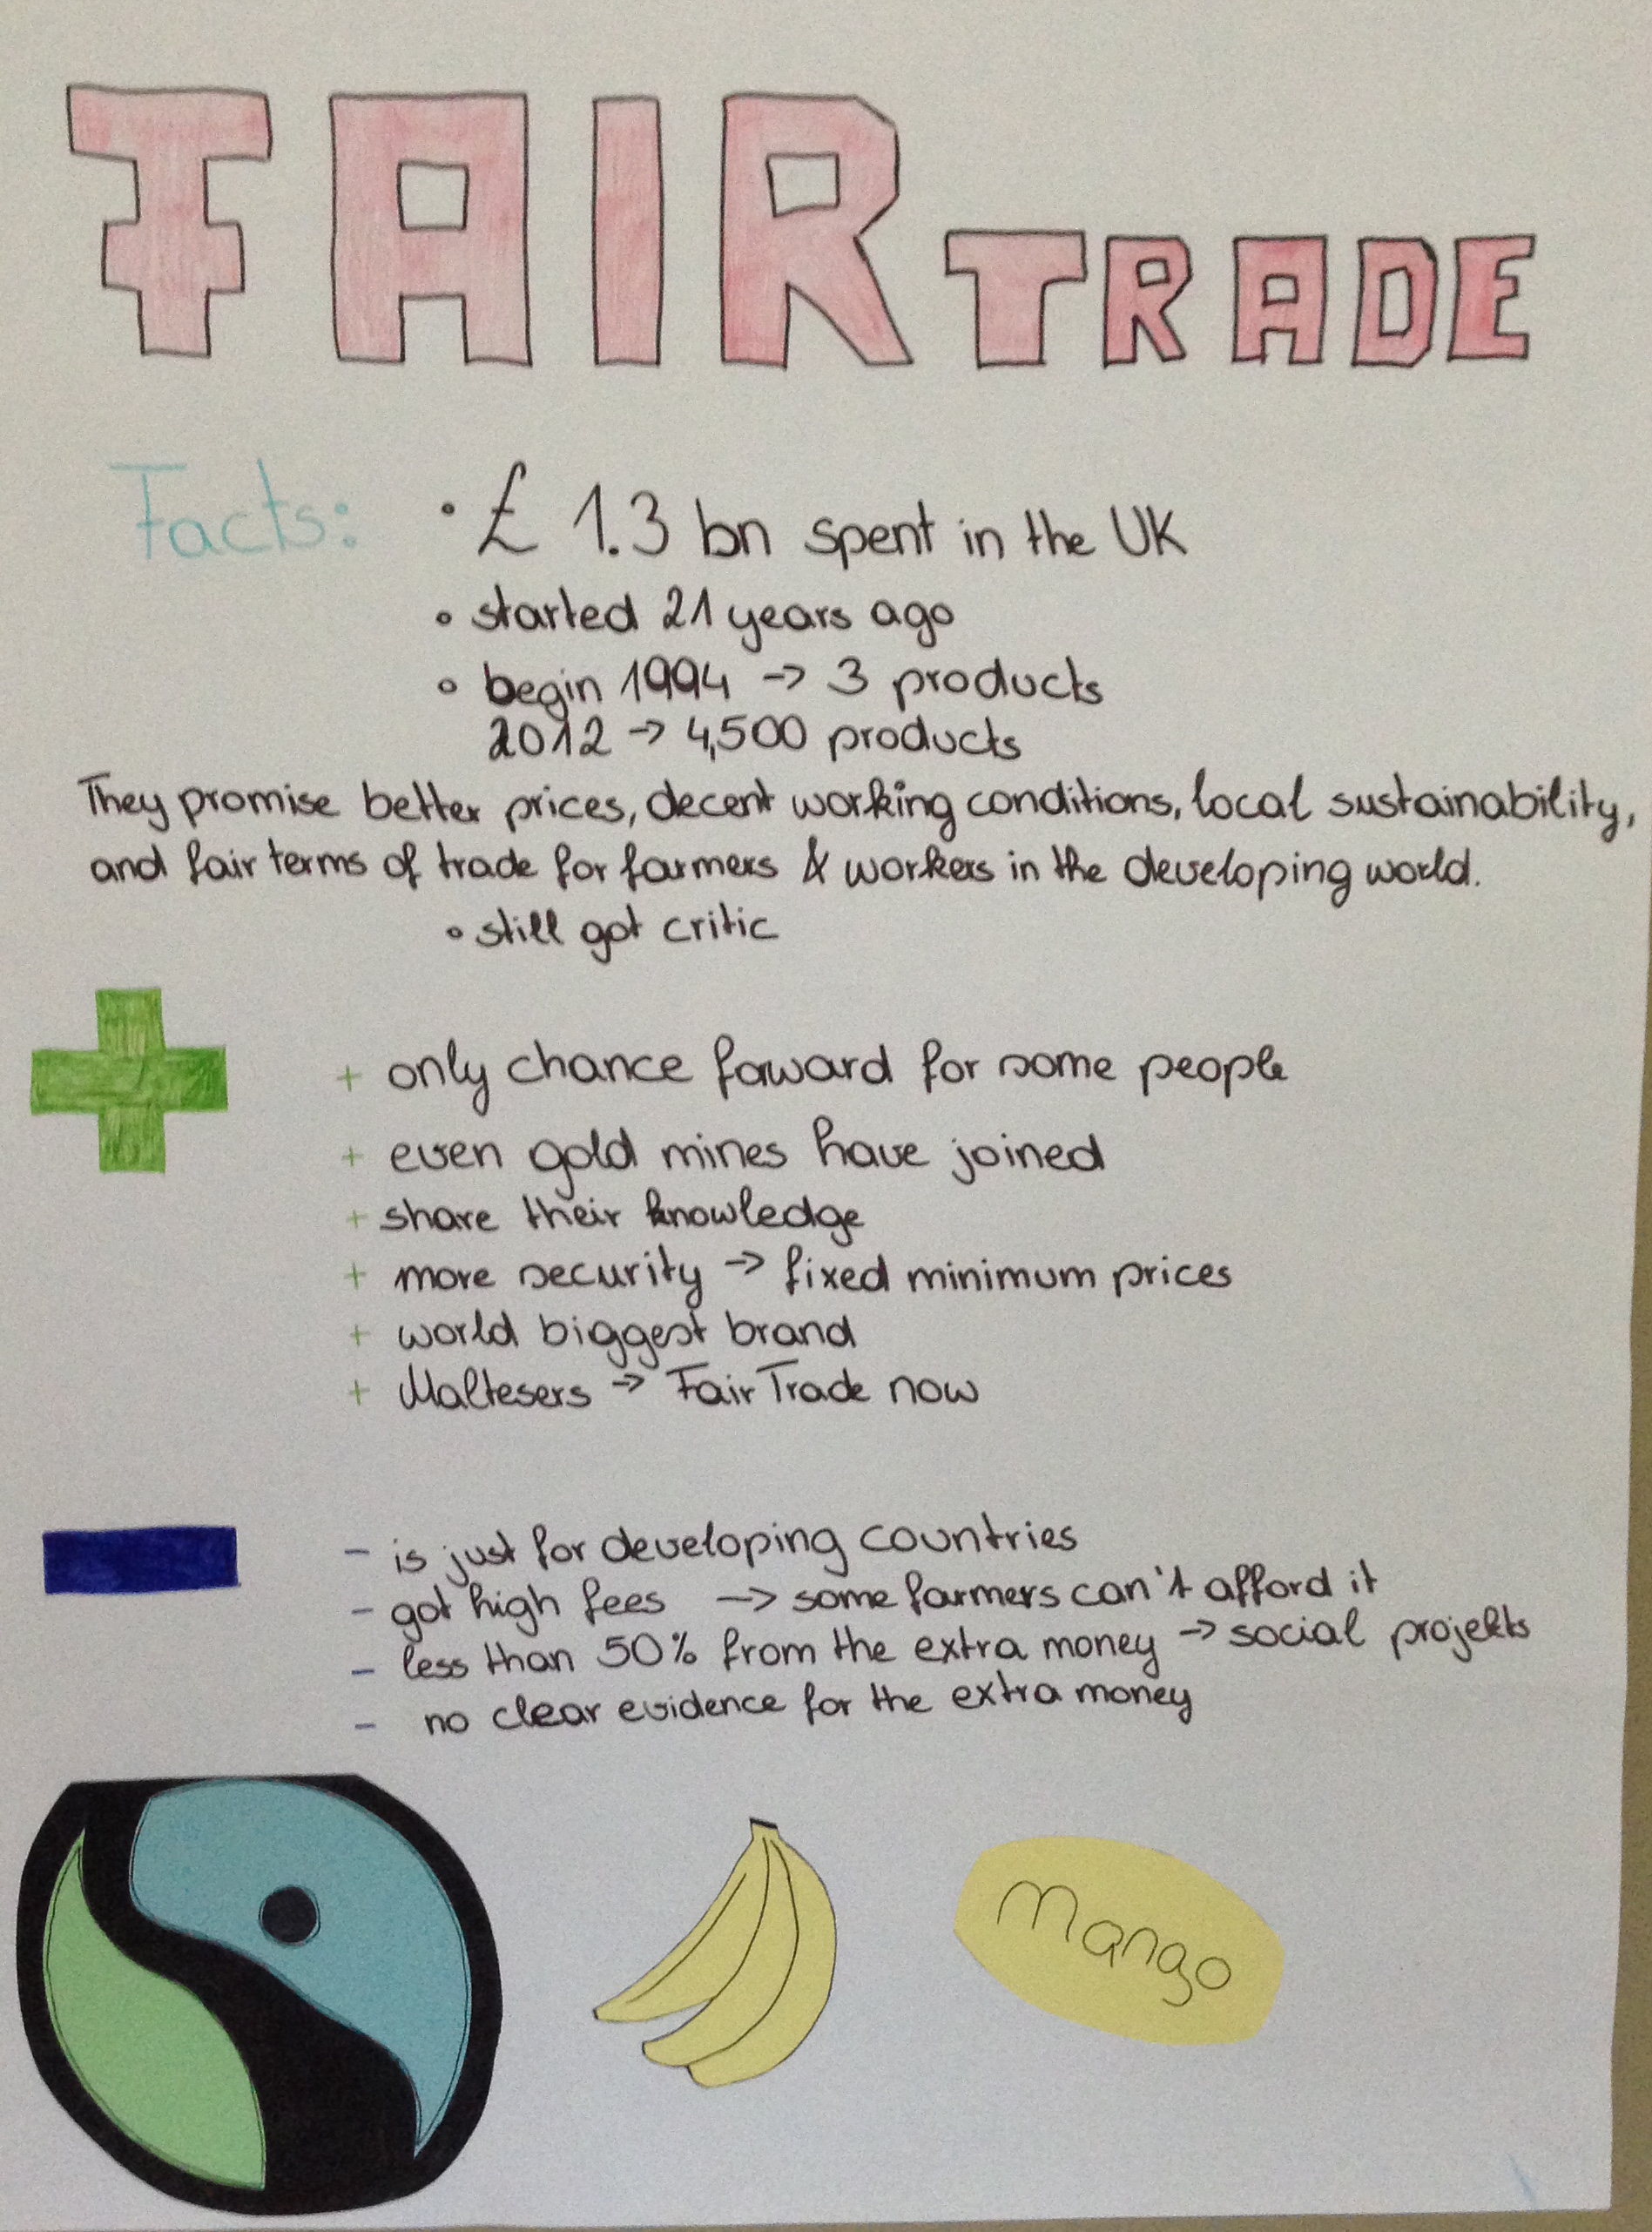 FAIR TRADE
Facts: • £ 1.3 bn spent in the UK
• started 21 years ago
• begin 1994 → 3 products
2012 → 4,500 products
They promise better prices, decent working conditions, local sustainability,
and fair terms of trade for farmers & workers in the developing world.
• still got critic
+ only chance forward for some people
+ even gold mines have joined
+ share their knowledge
+ more security → fixed minimum prices
+ world biggest brand
+ Maltesers → FairTrade now
- is just for developing countries
- got high fees → some farmers can't afford it
- less than 50% from the extra money → social projekts
- no clear evidence for the extra money
Mango